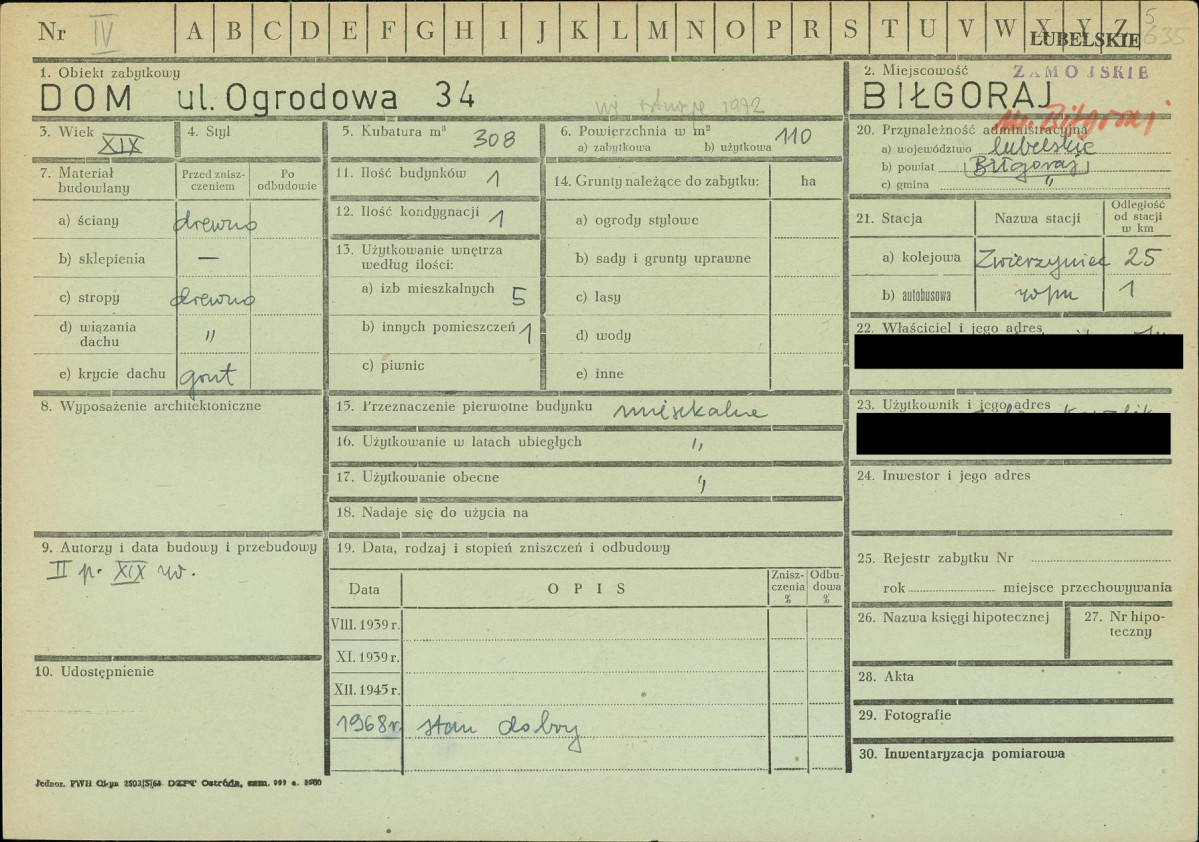 Nr IV A B C D E F G H I J K L M N O P R S T U V W X Y Z 5
LUBELSKIE 635
1. Obiekt zabytkowy
DOM ul. Ogrodowa 34
nie istnieje 1972
2. Miejscowość ZAMOJSKIE
BIŁGORAJ
m. Biłgoraj
3. Wiek
XIX
4. Styl
5. Kubatura m³ 308
6. Powierzchnia w m² 110
a) zabytkowa b) użytkowa
20. Przynależność administracyjna
a) województwo lubelskie
b) powiat Biłgoraj
c) gmina "
7. Materiał budowlany
Przed znisz-
czeniem
Po
odbudowie
a) ściany drewno
b) sklepienia —
c) stropy drewno
d) wiązania
dachu "
e) krycie dachu gont
11. Ilość budynków 1
12. Ilość kondygnacji 1
13. Użytkowanie wnętrza
według ilości:
a) izb mieszkalnych 5
b) innych pomieszczeń 1
c) piwnic
14. Grunty należące do zabytku: ha
a) ogrody stylowe
b) sady i grunty uprawne
c) lasy
d) wody
e) inne
21. Stacja Nazwa stacji
Odległość
od stacji
w km
a) kolejowa Zwierzyniec 25
b) autobusowa 1
22. Właściciel i jego adres
23. Użytkownik i jego adres
8. Wyposażenie architektoniczne
15. Przeznaczenie pierwotne budynku mieszkalne
16. Użytkowanie w latach ubiegłych "
17. Użytkowanie obecne "
18. Nadaje się do użycia na
24. Inwestor i jego adres
9. Autorzy i data budowy i przebudowy
II p. XIX w.
19. Data, rodzaj i stopień zniszczeń i odbudowy
Data OPIS
Znisz-
czenia
%
Odbu-
dowa
%
VIII. 1939 r.
XI. 1939 r.
XII. 1945 r.
1968 r. stan dobry
25. Rejestr zabytku Nr
rok miejsce przechowywania
26. Nazwa księgi hipotecznej
27. Nr hipo-
teczny
10. Udostępnienie
28. Akta
29. Fotografie
30. Inwentaryzacja pomiarowa
Jednor. PWH